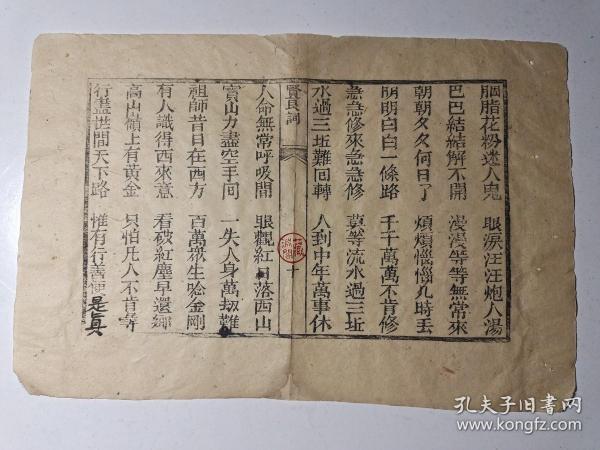 胭脂花粉迷人鬼 眼淚汪汪炮人湯
巴巴結結解不開 漫漫等等無常來
朝朝久久何日了 煩煩惱惱几時丟
明明白白一條路 千千萬萬不肯修
急急修來急急修 莫等流水過三坵
水過三坵難回轉 人到中年萬事休
賢良詞 十
人命無常呼吸間 眼觀紅日落西山
寶山力盡空手回 一失人身萬刼難
祖師昔日在西方 百萬衆生唸金剛
有人識得西來意 看破紅塵早還鄉
高山嶺上有黄金 只怕凡人不肯尋
行盡世間天下路 惟有行善便是真
孔夫子旧书网
www.kongfz.com